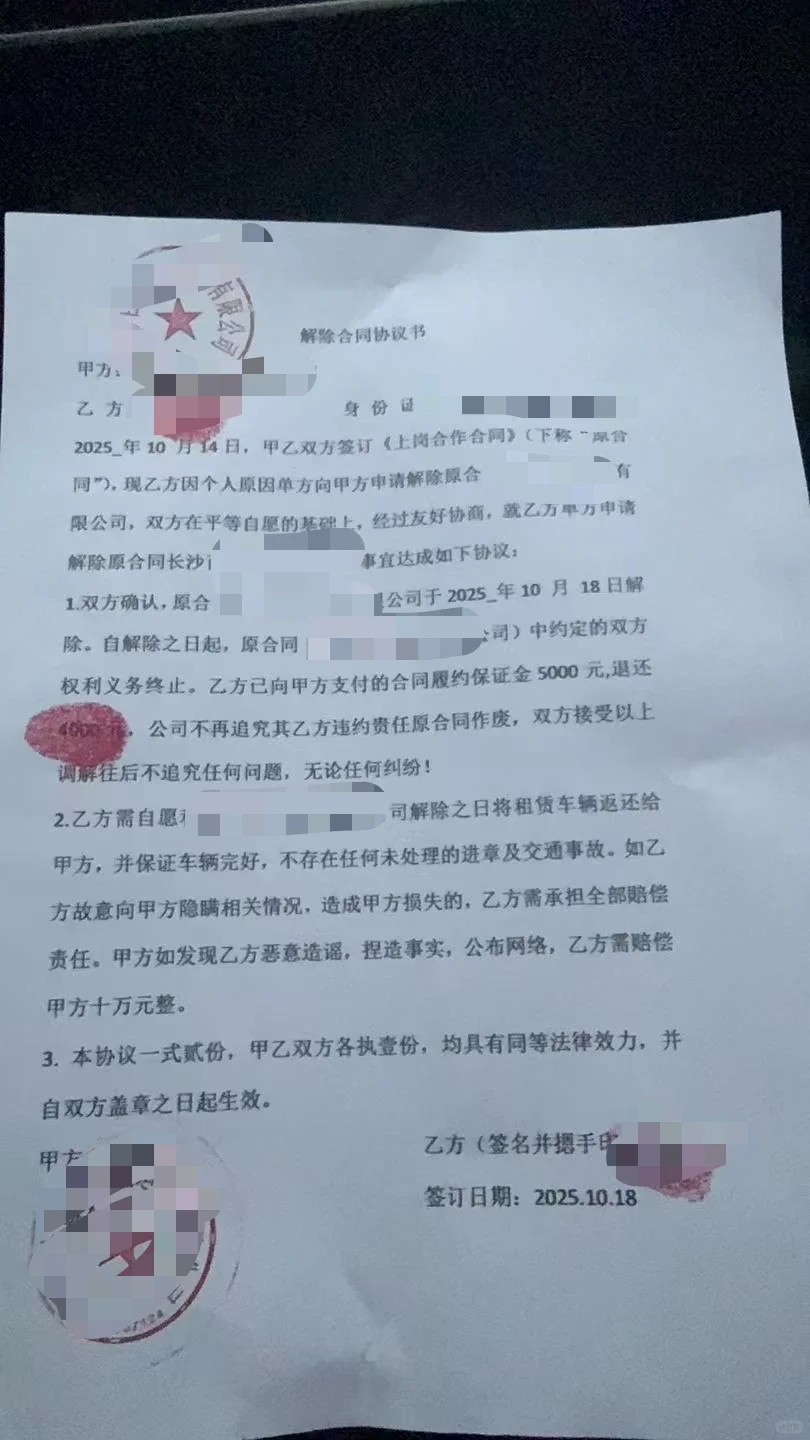 有限公司
解除合同协议书
甲方:
乙 方 身 份 证
2025_年 10 月 14 日，甲乙双方签订《上岗合作合同》（下称“原合
同”），现乙方因个人原因单方向甲方申请解除原合 有
限公司，双方在平等自愿的基础上，经过友好协商，就乙方单方申请
解除原合同长沙 事宜达成如下协议：
1.双方确认，原合 公司于 2025_年 10 月 18 日解
除。自解除之日起，原合同 公司）中约定的双方
权利义务终止。乙方已向甲方支付的合同履约保证金 5000 元,退还
4000 元，公司不再追究其乙方违约责任原合同作废，双方接受以上
调解往后不追究任何问题，无论任何纠纷！
2.乙方需自愿 司解除之日将租赁车辆返还给
甲方，并保证车辆完好，不存在任何未处理的进章及交通事故。如乙
方故意向甲方隐瞒相关情况，造成甲方损失的，乙方需承担全部赔偿
责任。甲方如发现乙方恶意造谣，捏造事实，公布网络，乙方需赔偿
甲方十万元整。
3. 本协议一式贰份，甲乙双方各执壹份，均具有同等法律效力，并
自双方盖章之日起生效。
甲方
乙方（签名并摁手印
签订日期：2025.10.18